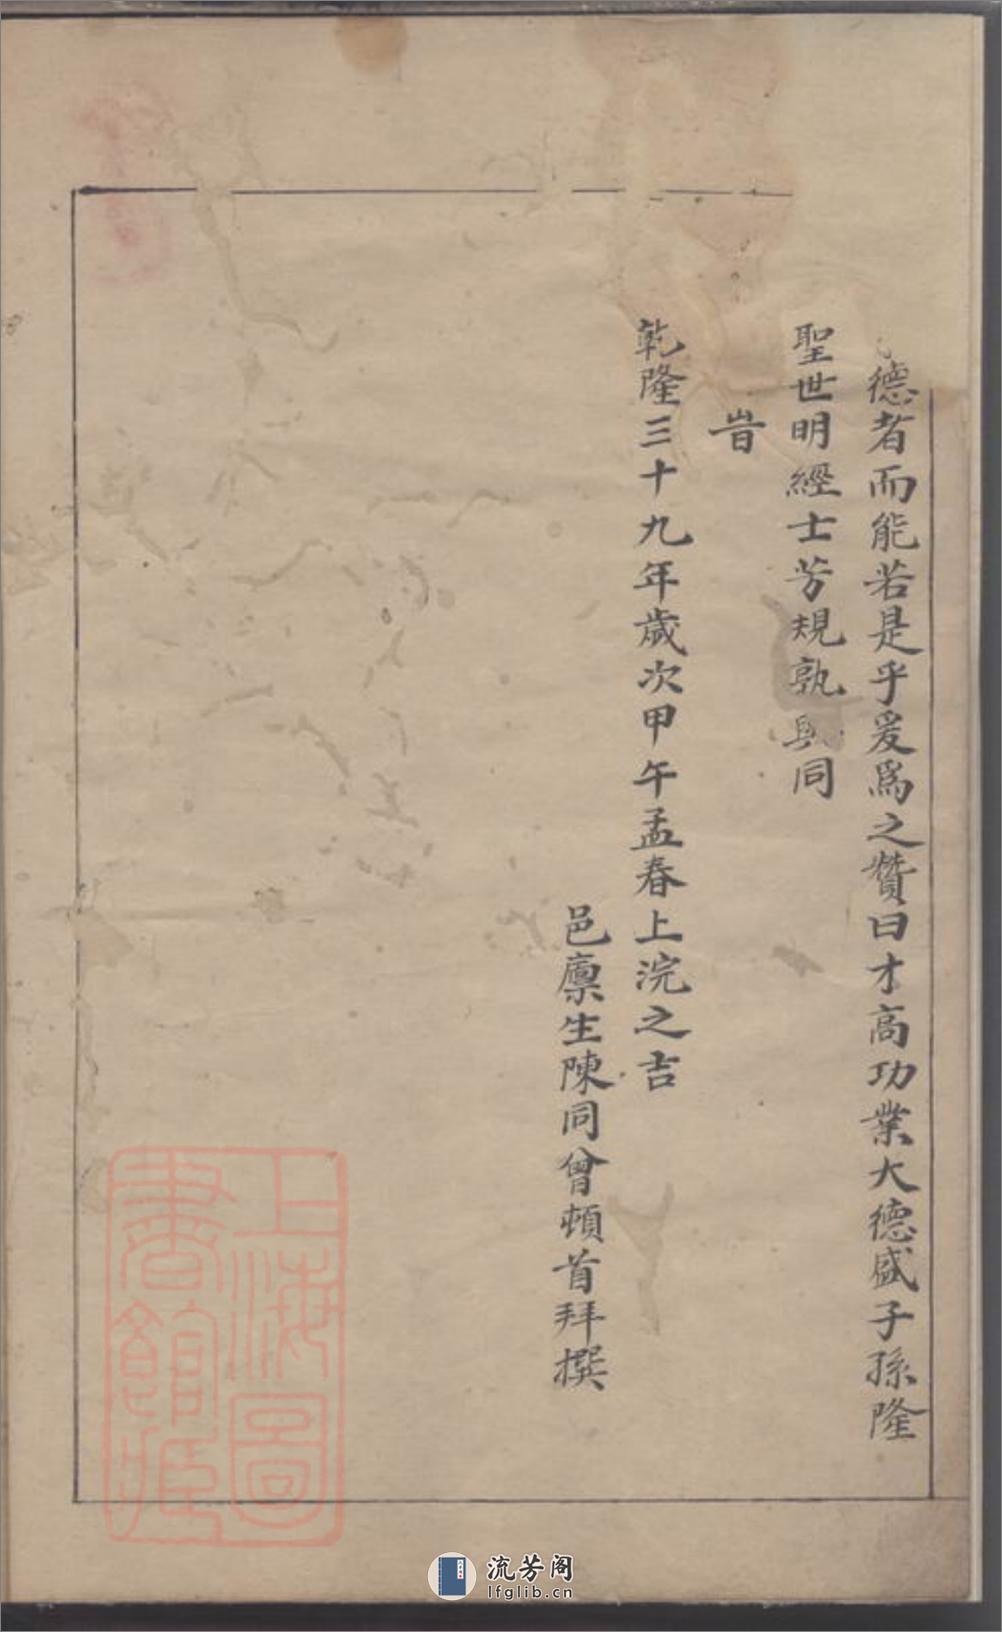 德者而能若是乎爰為之贊曰才高功業大德盛子孫隆
聖世明經士芳規孰與同
旹
乾隆三十九年歲次甲午孟春上浣之吉
邑廩生陳同曾頓首拜撰
上海圖
書館藏
流芳阁
lfglib.cn